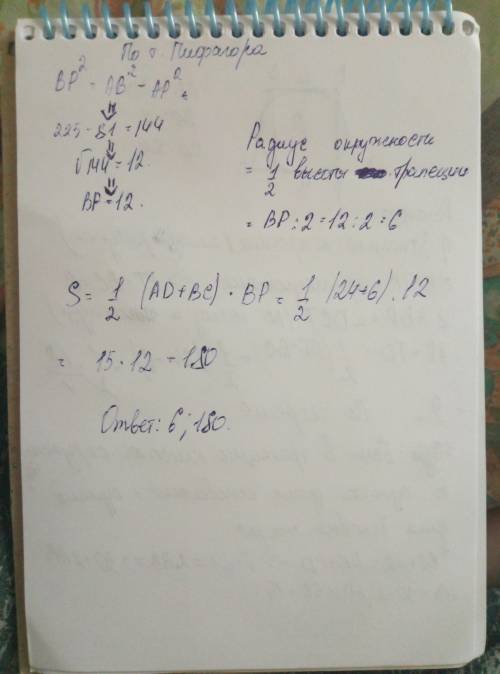 По т. Пифагора
BP² = AB² - AP²
⇓
225-81=144
⇓
√144=12.
⇓
BP=12.
Радиус окружности
= 1/2 высоты трапеции
= BP:2=12:2=6
S= 1/2 (AD+BC) · BP= 1/2 (24+6) · 12
= 15·12 = 180
Ответ: 6; 180.